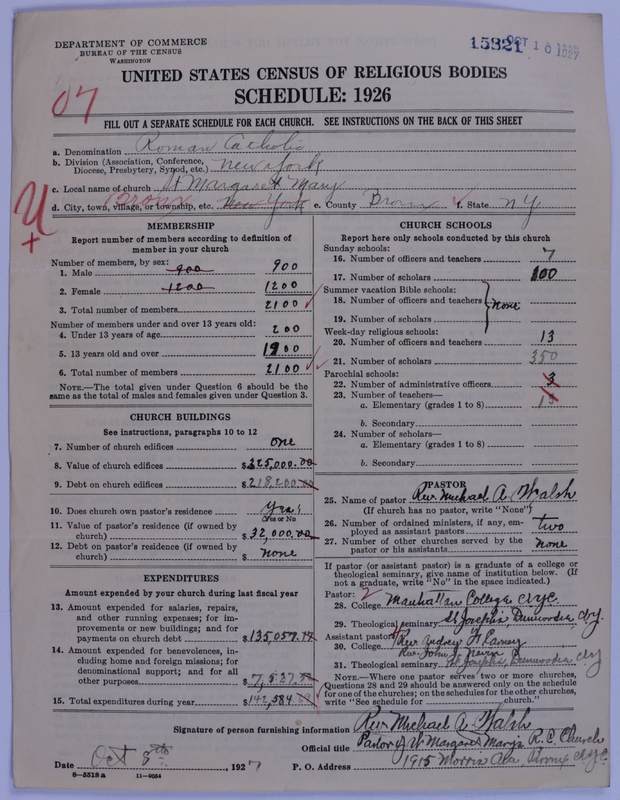 DEPARTMENT OF COMMERCE
BUREAU OF THE CENSUS
WASHINGTON
15321 OCT 10 1927
UNITED STATES CENSUS OF RELIGIOUS BODIES
SCHEDULE: 1926
07
FILL OUT A SEPARATE SCHEDULE FOR EACH CHURCH. SEE INSTRUCTIONS ON THE BACK OF THIS SHEET
a. Denomination Roman Catholic
b. Division (Association, Conference, Diocese, Presbytery, Synod, etc.) New York
c. Local name of church St Margaret Mary
d. City, town, village, or township, etc. Bronx New York e. County Bronx f. State NY
MEMBERSHIP
Report number of members according to definition of member in your church
Number of members, by sex:
1. Male 900 900
2. Female 1200 1200
3. Total number of members 2100
Number of members under and over 13 years old:
4. Under 13 years of age 200
5. 13 years old and over 1900
6. Total number of members 2100
NOTE.—The total given under Question 6 should be the same as the total of males and females given under Question 3.
CHURCH BUILDINGS
See instructions, paragraphs 10 to 12
7. Number of church edifices one
8. Value of church edifices $325,000.00
9. Debt on church edifices $218,200.00
10. Does church own pastor's residence? Yes
Yes or No
11. Value of pastor's residence (if owned by church) $32,000.00
12. Debt on pastor's residence (if owned by church) $ none
EXPENDITURES
Amount expended by your church during last fiscal year
13. Amount expended for salaries, repairs, and other running expenses; for improvements or new buildings; and for payments on church debt $135,057.
14. Amount expended for benevolences, including home and foreign missions; for denominational support; and for all other purposes $7,527.
15. Total expenditures during year $142,584.
CHURCH SCHOOLS
Report here only schools conducted by this church
Sunday schools:
16. Number of officers and teachers 7
17. Number of scholars 100
Summer vacation Bible schools:
18. Number of officers and teachers
none
19. Number of scholars
Week-day religious schools:
20. Number of officers and teachers 13
21. Number of scholars 350
Parochial schools:
22. Number of administrative officers 3
23. Number of teachers—
a. Elementary (grades 1 to 8) 13
b. Secondary
24. Number of scholars—
a. Elementary (grades 1 to 8)
b. Secondary
PASTOR
25. Name of pastor Rev. Michael A. Walsh
(If church has no pastor, write "None")
26. Number of ordained ministers, if any, employed as assistant pastors two
27. Number of other churches served by the pastor or his assistants none
If pastor (or assistant pastor) is a graduate of a college or theological seminary, give name of institution below. (If not a graduate, write "No" in the space indicated.)
Pastor: 2
28. College Manhattan College NYC
29. Theological seminary St Josephs Dunwoodie NY.
Assistant pastor: Rev Andrew
30. College Rev. John
31. Theological seminary St Josephs Dunwoodie NY
NOTE.—Where one pastor serves two or more churches, Questions 28 and 29 should be answered only on the schedule for one of the churches; on the schedules for the other churches, write "See schedule for church."
Signature of person furnishing information Rev Michael A. Walsh
Official title Pastor of St Margaret Mary's R. C. Church
Date Oct 8th, 1927 P. O. Address 1915 Morris Ave Bronx NYC.
8—5518 a 11—9054